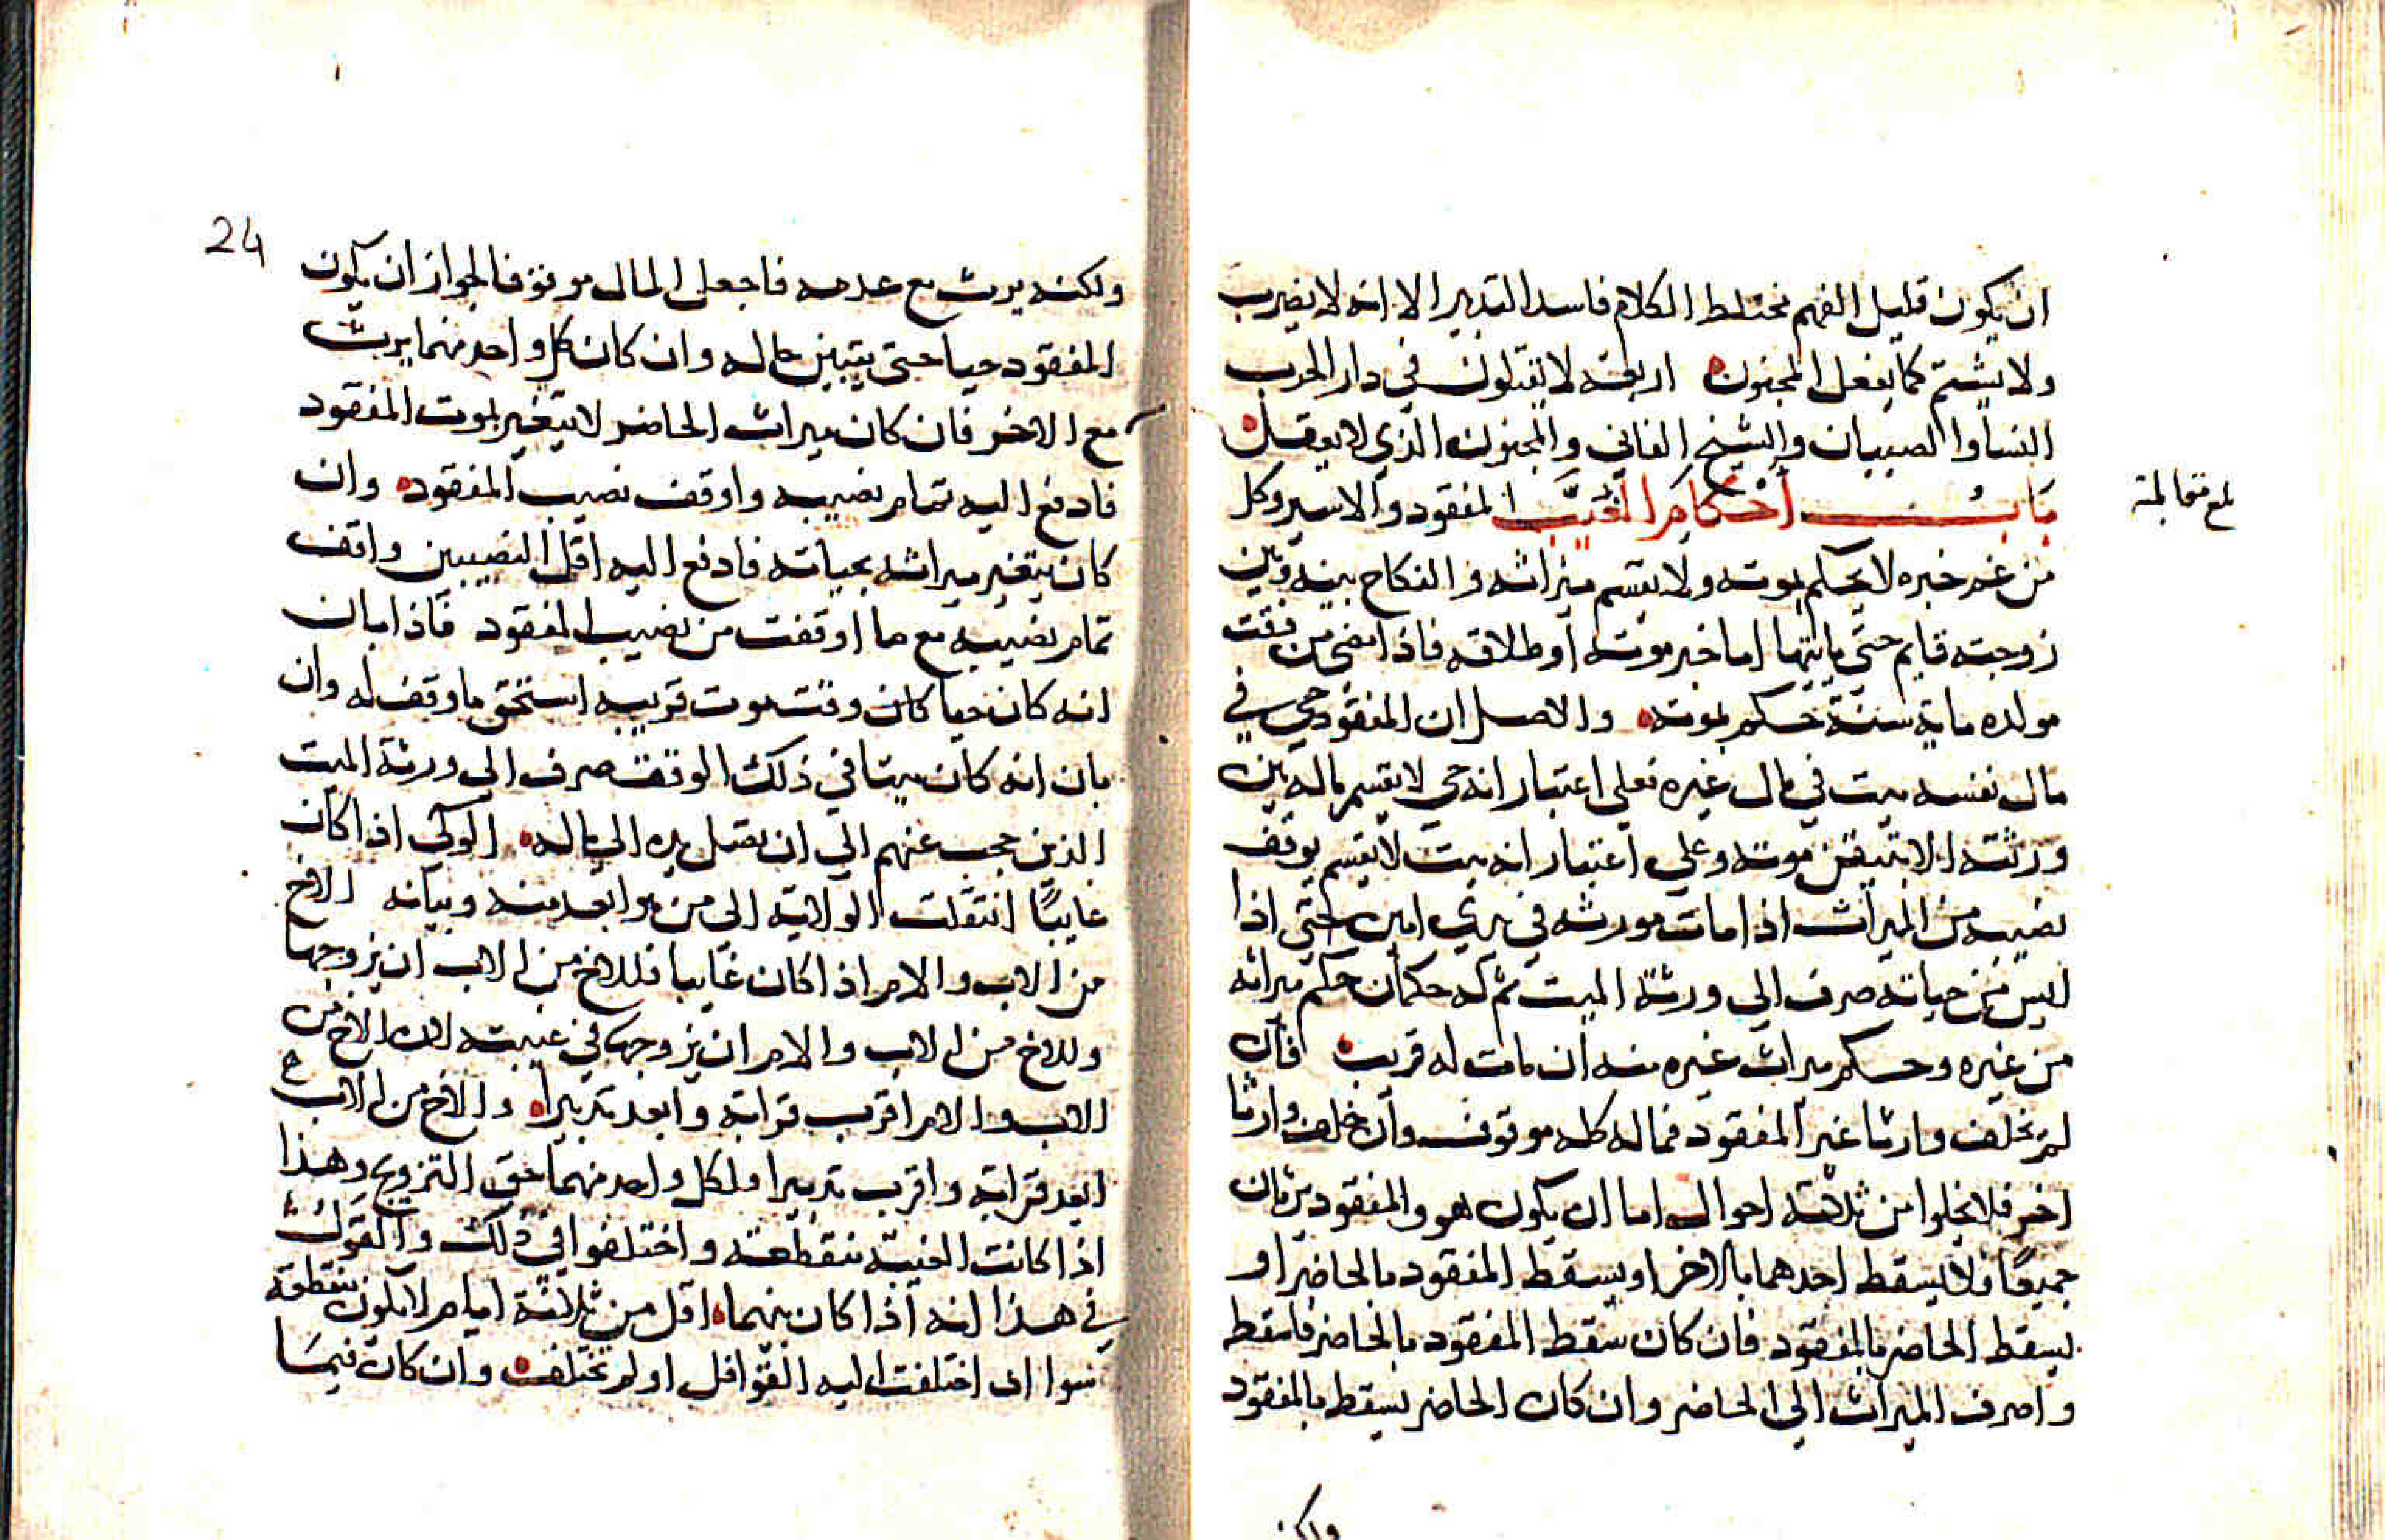 ان يكون قليل الفهم مختلط الكلام فاسد التدبير الا انه لا يضرب
ولا يشتم كما يفعل المجنون اربعة لا يقتلون في دار الحرب
النسا والصبيان والشيخ الفاني والمجنون الذي لا يعقل
باب احكام الغيب المفقود والاسير وكل
بلغ مقابلة
من غم خبره لا يحكم بموته ولا يقسم ميراثه والنكاح بينه وبين
زوجته قايم حتى ياتيها اما خبر موته او طلاقه فاذا مضى من وقت
مولده ماية سنة حكم بموته والاصل ان المفقود حي في
مال نفسه ميت في مال غيره فعلى اعتبار انه حي لا يقسم ماله بين
ورثته الا بتيقن موته وعلي اعتبار انه ميت لا يقسم يوقف
نصيبه من الميراث اذا مات مورثه في يدي امين حتى اذا
ايس من حياته صرف الي ورثة الميت ثم له حكمان حكم ميراثه
من غيره وحكم ميراث غيره منه ان مات له قريب فان
لم يخلف وارثا غير المفقود فماله كله موقوف وان خلف وارثا
اخر فلا يخلوا من ثلاثة احوال اما ان يكون هو والمفقود يرثان
جميعا ولا يسقط احدهما بالاخر او يسقط المفقود بالحاضر او
يسقط الحاضر بالمفقود فان كان سقط المفقود بالحاضر فاسقط
واصرف الميراث الي الحاضر وان كان الحاضر يسقط بالمفقود
ولكنه
24
ولكنه يرث مع عدمه فاجعل المال موقوفا لجواز ان يكون
المفقود حيا حتى يتبين حاله وان كان كل واحد منهما يرث
مع الاخر فان كان ميراث الحاضر لا يتغير بموت المفقود
فادفع اليه تمام نصيبه واوقف نصيب المفقود وان
كان يتغير ميراثه بحياته فادفع اليه اقل النصيبين واقف
تمام نصيبه مع ما اوقفت من نصيب المفقود فاذا بان
انه كان حيا كان وقت موت قريبه استحق ما وقف له وان
بان انه كان ميتا في ذلك الوقت صرف الى ورثة الميت
الذين حجب عنهم الي ان يصل يده الي ماله الولي اذا كان
غايبا انتقلت الولاية الى من هو ابعد منه وبيانه الاخ
من الاب والام اذا كان غايبا فللاخ من الاب ان يزوجها
وللاخ من الاب والام ان يزوجها في غيبته لان الاخ من
الاب والام اقرب قرابة وابعد تدبيرا والاخ من الاب
ابعد قرابة واقرب تدبيرا ولكل واحد منهما حق التزويج وهذا
اذا كانت الغيبة منقطعة واختلفوا في ذلك والقول
في هذا انه اذا كان بينهما اقل من ثلاثة ايام لا يكون منقطعة
سوا اى اختلفت اليه القوافل او لم تختلف وان كان فيما